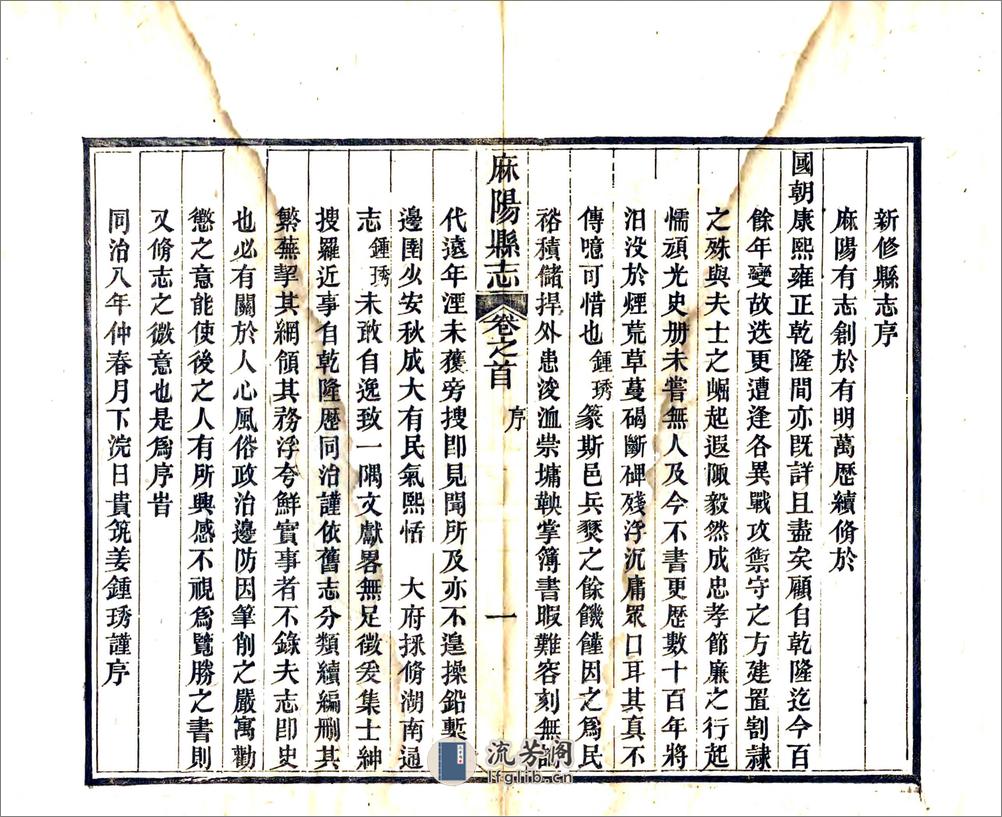 新修縣志序
麻陽有志創於有明萬歷續脩於
國朝康熙雍正乾隆間亦既詳且盡矣顧自乾隆迄今百
餘年變故迭更遭逢各異戰攻禦守之方建置割隸
之殊與夫士之崛起遐陬毅然成忠孝節廉之行起
懦頑光史册未嘗無人及今不書更歷數十百年將
汨没於煙荒草蔓碣斷碑殘浮沉庸眾口耳其真不
傳噫可惜也鍾琇篆斯邑兵燹之餘饑饉因之爲民
裕積儲捍外患浚洫崇墉鞅掌簿書暇難容刻無論
麻陽縣志 卷之首 序 一
代遠年湮未獲旁搜卽見聞所及亦不遑操鉛槧
邊圉少安秋成大有民氣熙恬 大府採脩湖南通
志鍾琇未敢自逸致一隅文獻畧無足徵爰集士紳
搜羅近事自乾隆歷同治謹依舊志分類續編刪其
繁蕪挈其綱領其務浮夸鮮實事者不錄夫志卽史
也必有關於人心風俗政治邊防因筆削之嚴寓勸
懲之意能使後之人有所興感不視爲覽勝之書則
又脩志之微意也是爲序旹
同治八年仲春月下浣日貴筑姜鍾琇謹序
流芳阁
lfglib.cn